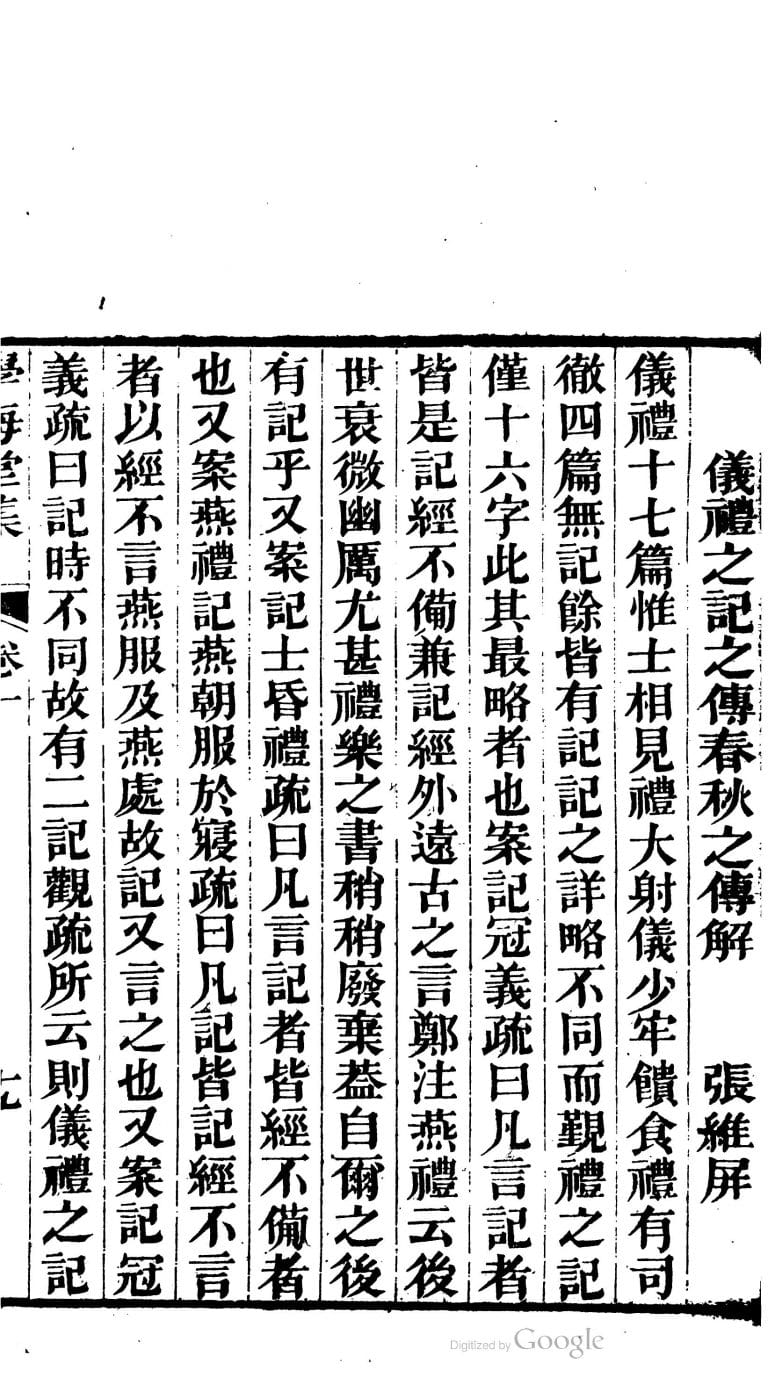 儀禮之記之傳春秋之傳解 張維屏
儀禮十七篇惟士相見禮大射儀少牢饋食禮有司
徹四篇無記餘皆有記記之詳略不同而覲禮之記
僅十六字此其最略者也案記冠義疏曰凡言記者
皆是記經不備兼記經外遠古之言鄭注燕禮云後
世衰微幽厲尤甚禮樂之書稍稍廢棄葢自爾之後
有記乎又案記士昏禮疏曰凡言記者皆經不備者
也又案燕禮記燕朝服於寢疏曰凡記皆記經不言
者以經不言燕服及燕處故記又言之也又案記冠
義疏曰記時不同故有二記觀疏所云則儀禮之記
學海堂集 卷一 十九
Digitized by Google